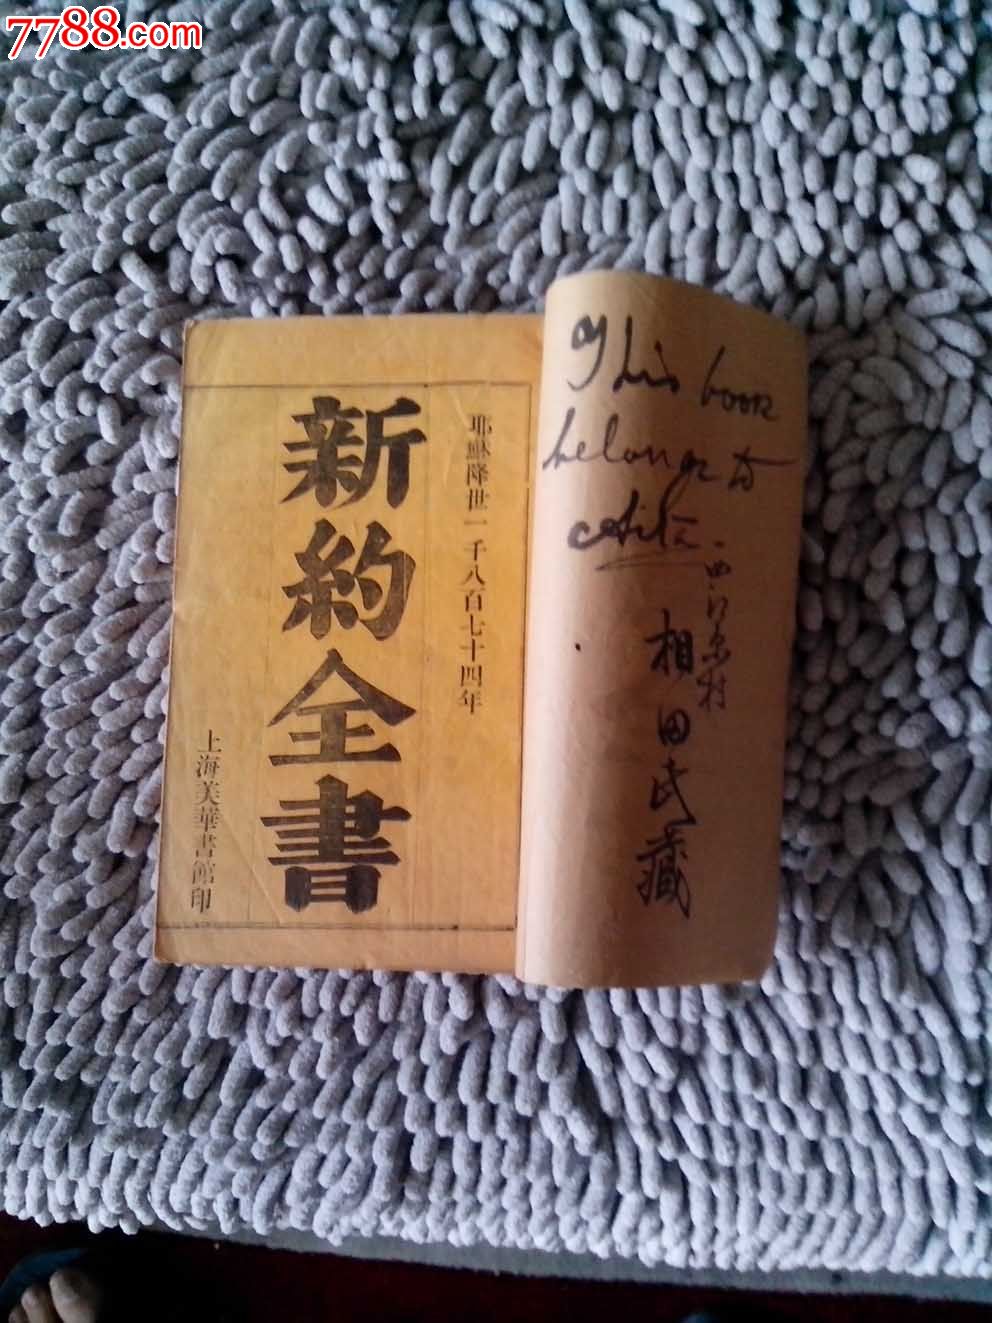 7788.com
This book
belongs to
Aita.
相田氏藏
耶穌降世一千八百七十四年
新約全書
上海美華書館印